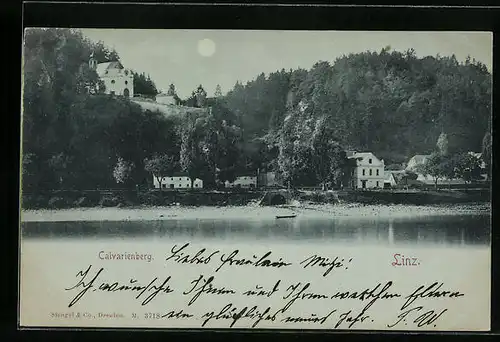 Calvarienberg.
Linz.
Liebes Fräulein Mitzi!
Ich wünsche Ihnen und Ihren werthen Eltern
ein glückliches neues Jahr. F. W.
Stengel & Co., Dresden. M. 3718